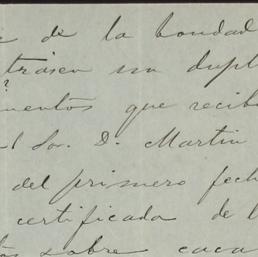 de la bondad
trasen un dupl
?
mentos que recib
l Sor. D. Martin
del primero fech
certificada de l
sobre caca